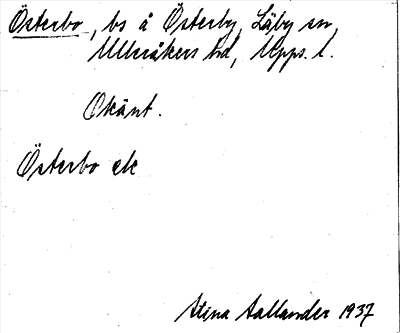 Österbo, bs å Österby, Läby sn,
Ulleråkers hd, Upps. l.
Okänt.
Österbo etc
Stina Aallander 1937